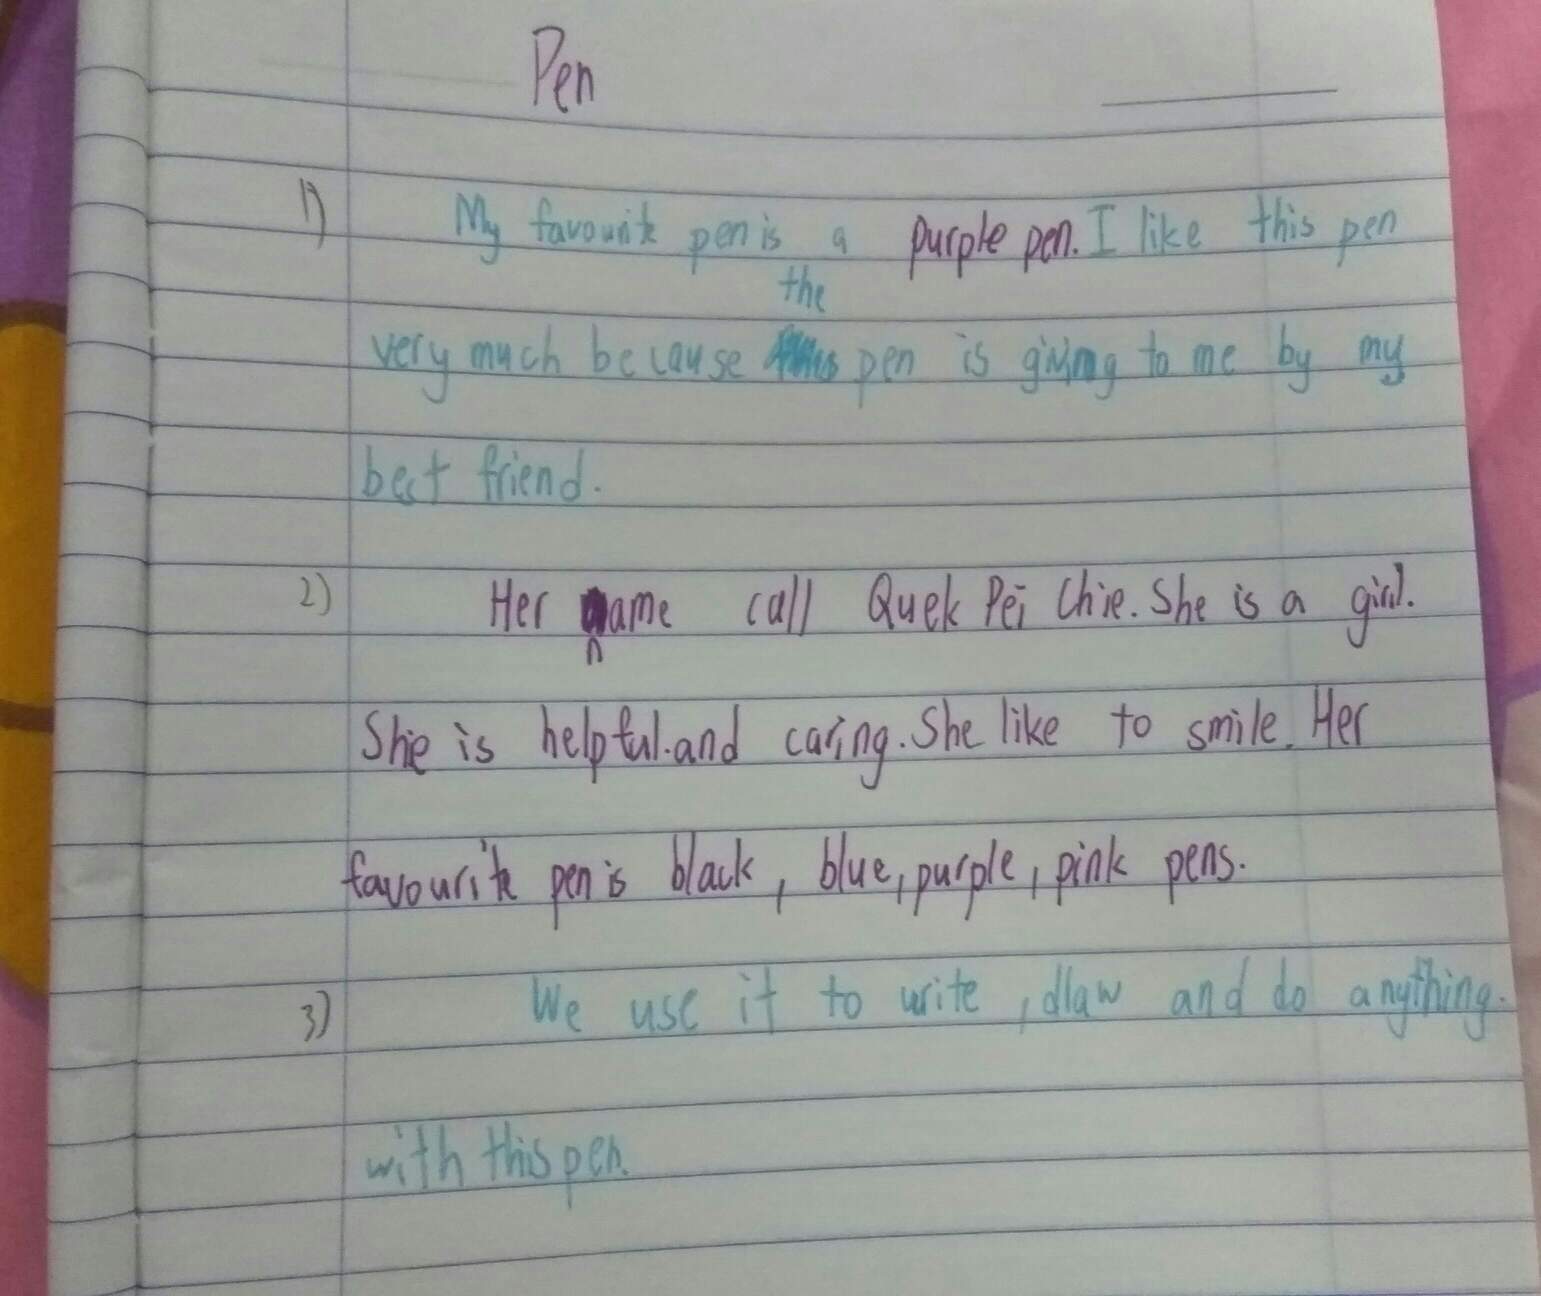 Pen
1) My favourite pen is a purple pen. I like this pen
the
very much because pen is giving to me by my
best friend.
2) Her name call Quek Pei Chie. She is a girl.
n
She is helpful.and caring. She like to smile. Her
favourite pen is black, blue, purple, pink pens.
3) We use it to write, dlaw and do anything.
with this pen.